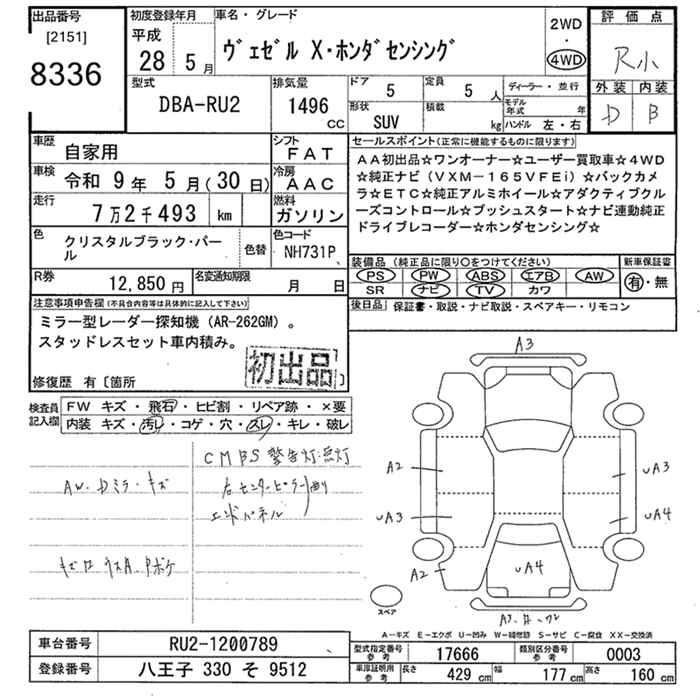 出品番号
[2151]
8336
初度登録年月
平成
28 5 月
車名・グレード
ヴェゼル X・ホンダセンシング
2WD
・
4WD
評価点
R小
外装 内装
D B
型式
DBA-RU2
排気量
1496 CC
ドア 5
定員 5 人
ディーラー・並行
形状
SUV
積載 kg
モデル年式 年
ハンドル 左・右
車歴
自家用
シフト
FAT
車検 令和 9 年 5 月(30 日)
冷房
AAC
走行
7万2千493 km
燃料
ガソリン
色
クリスタルブラック・パール
色替
色コード
NH731P
R券
12,850 円
名変通知期限
月 日
セールスポイント(正常に機能するものに限り)
AA初出品☆ワンオーナー☆ユーザー買取車☆4WD
☆純正ナビ(VXM-165VFEi)☆バックカメ
ラ☆ETC☆純正アルミホイール☆アダクティブクル
ーズコントロール☆プッシュスタート☆ナビ連動純正
ドライブレコーダー☆ホンダセンシング☆
装備品(純正品に限り○をつけてください)
PS PW ABS エアB AW
SR ナビ TV カワ
新車保証書
有・無
後日品 保証書・取説・ナビ取説・スペアキー・リモコン
注意事項申告欄(不具合内容等は具体的に記入して下さい)
ミラー型レーダー探知機(AR-262GM)。
スタッドレスセット車内積み。
初出品
修復歴 有〔箇所
検査員記入欄
FW キズ・飛石・ヒビ割・リペア跡・×要
内装 キズ・汚レ・コゲ・穴・スレ・キレ・破レ
CMBS 警告灯点灯
AW.Dミラ・キズ
右センターピラー曲り
エンドパネル
A3
A2
uA3
uA3
uA4
A2
uA4
スペア
A-キズ E-エクボ U-凹み W-補修跡 S-サビ C-腐食 XX-交換済
車台番号 RU2-1200789
登録番号 八王子 330 そ 9512
型式指定番号 参考 17666
類別区分番号 参考 0003
車庫証明用 参考 長さ 429 cm 幅 177 cm 高さ 160 cm